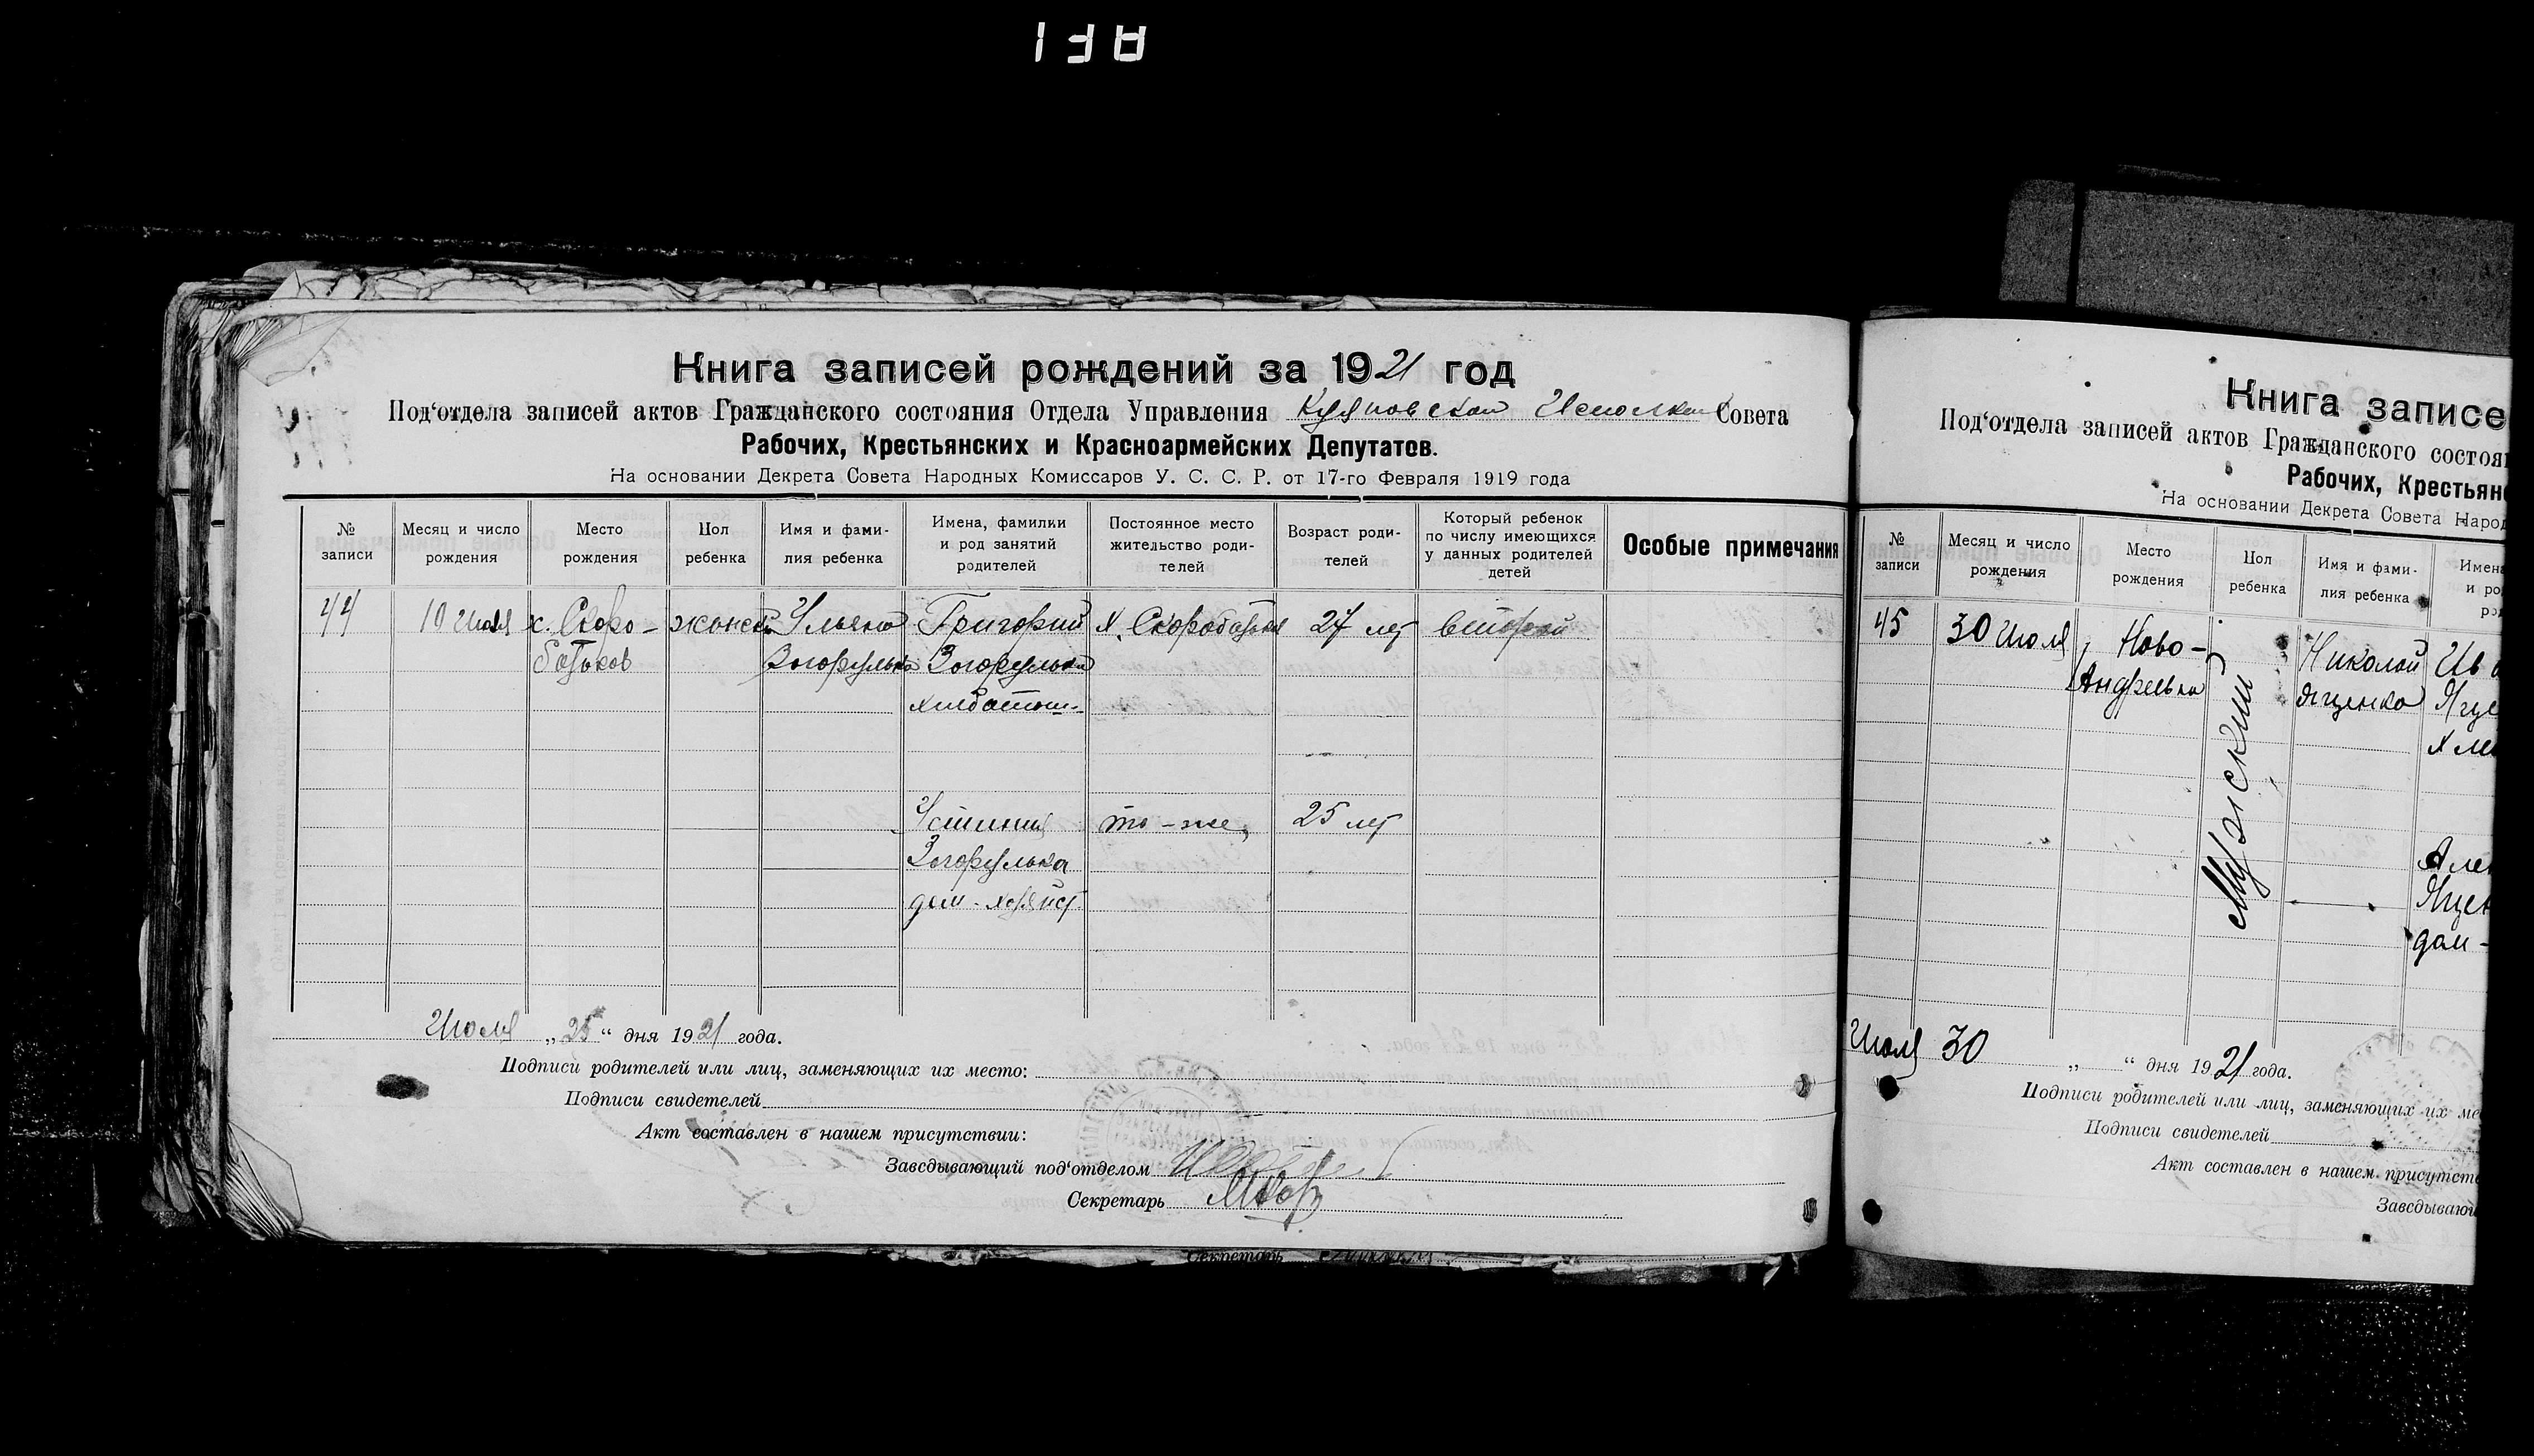 138
Книга записей рождений за 1921 год
Под‘отдела записей актов Гражданского состояния Отдела Управления Совета
Рабочих, Крестьянских и Красноармейских Депутатов.
На основании Декрета Совета Народных Комиссаров У. С. С. Р. от 17-го Февраля 1919 года
№ записи
Месяц и число рождения
Место рождения
Пол ребенка
Имя и фами-
лия ребенка
Имена, фамилки
и род занятий
родителей
Постоянное место
жительство роди-
телей
Возраст роди-
телей
Который ребенок
по числу имеющихся
у данных родителей
детей
Особые примечания
44
10 Июля
х. Скоро-
женск
Ульяна
Загорулька
Григорий
Загорулька
27 лет
второй
Устиния
Загорулька
дом-хозяйст
то-же
25 лет
Июля „25“ дня 1921 года.
Подписи родителей или лиц, заменяющих их место:
Подписи свидетелей
Акт составлен в нашем присутствии:
Заведывающий под‘отделом
Секретарь
Секретарь
Книга записе
Под‘отдела записей актов Гражданского состоян
Рабочих, Крестьянс
На основании Декрета Совета Народ
№ записи
Месяц и число рождения
Место рождения
Пол ребенка
Имя и фами-
лия ребенка
Имена
и ро
45
30 Июля
Ново-
Андреевка
Мужской
Николай
Ященко
Ив
Яще
Хле
Але
Ящен
дом-
Июля 30 „ “ дня 1921 года.
Подписи родителей или лиц, заменяющих их ме
Подписи свидетелей
Акт составлен в нашем присутств
Заведываю